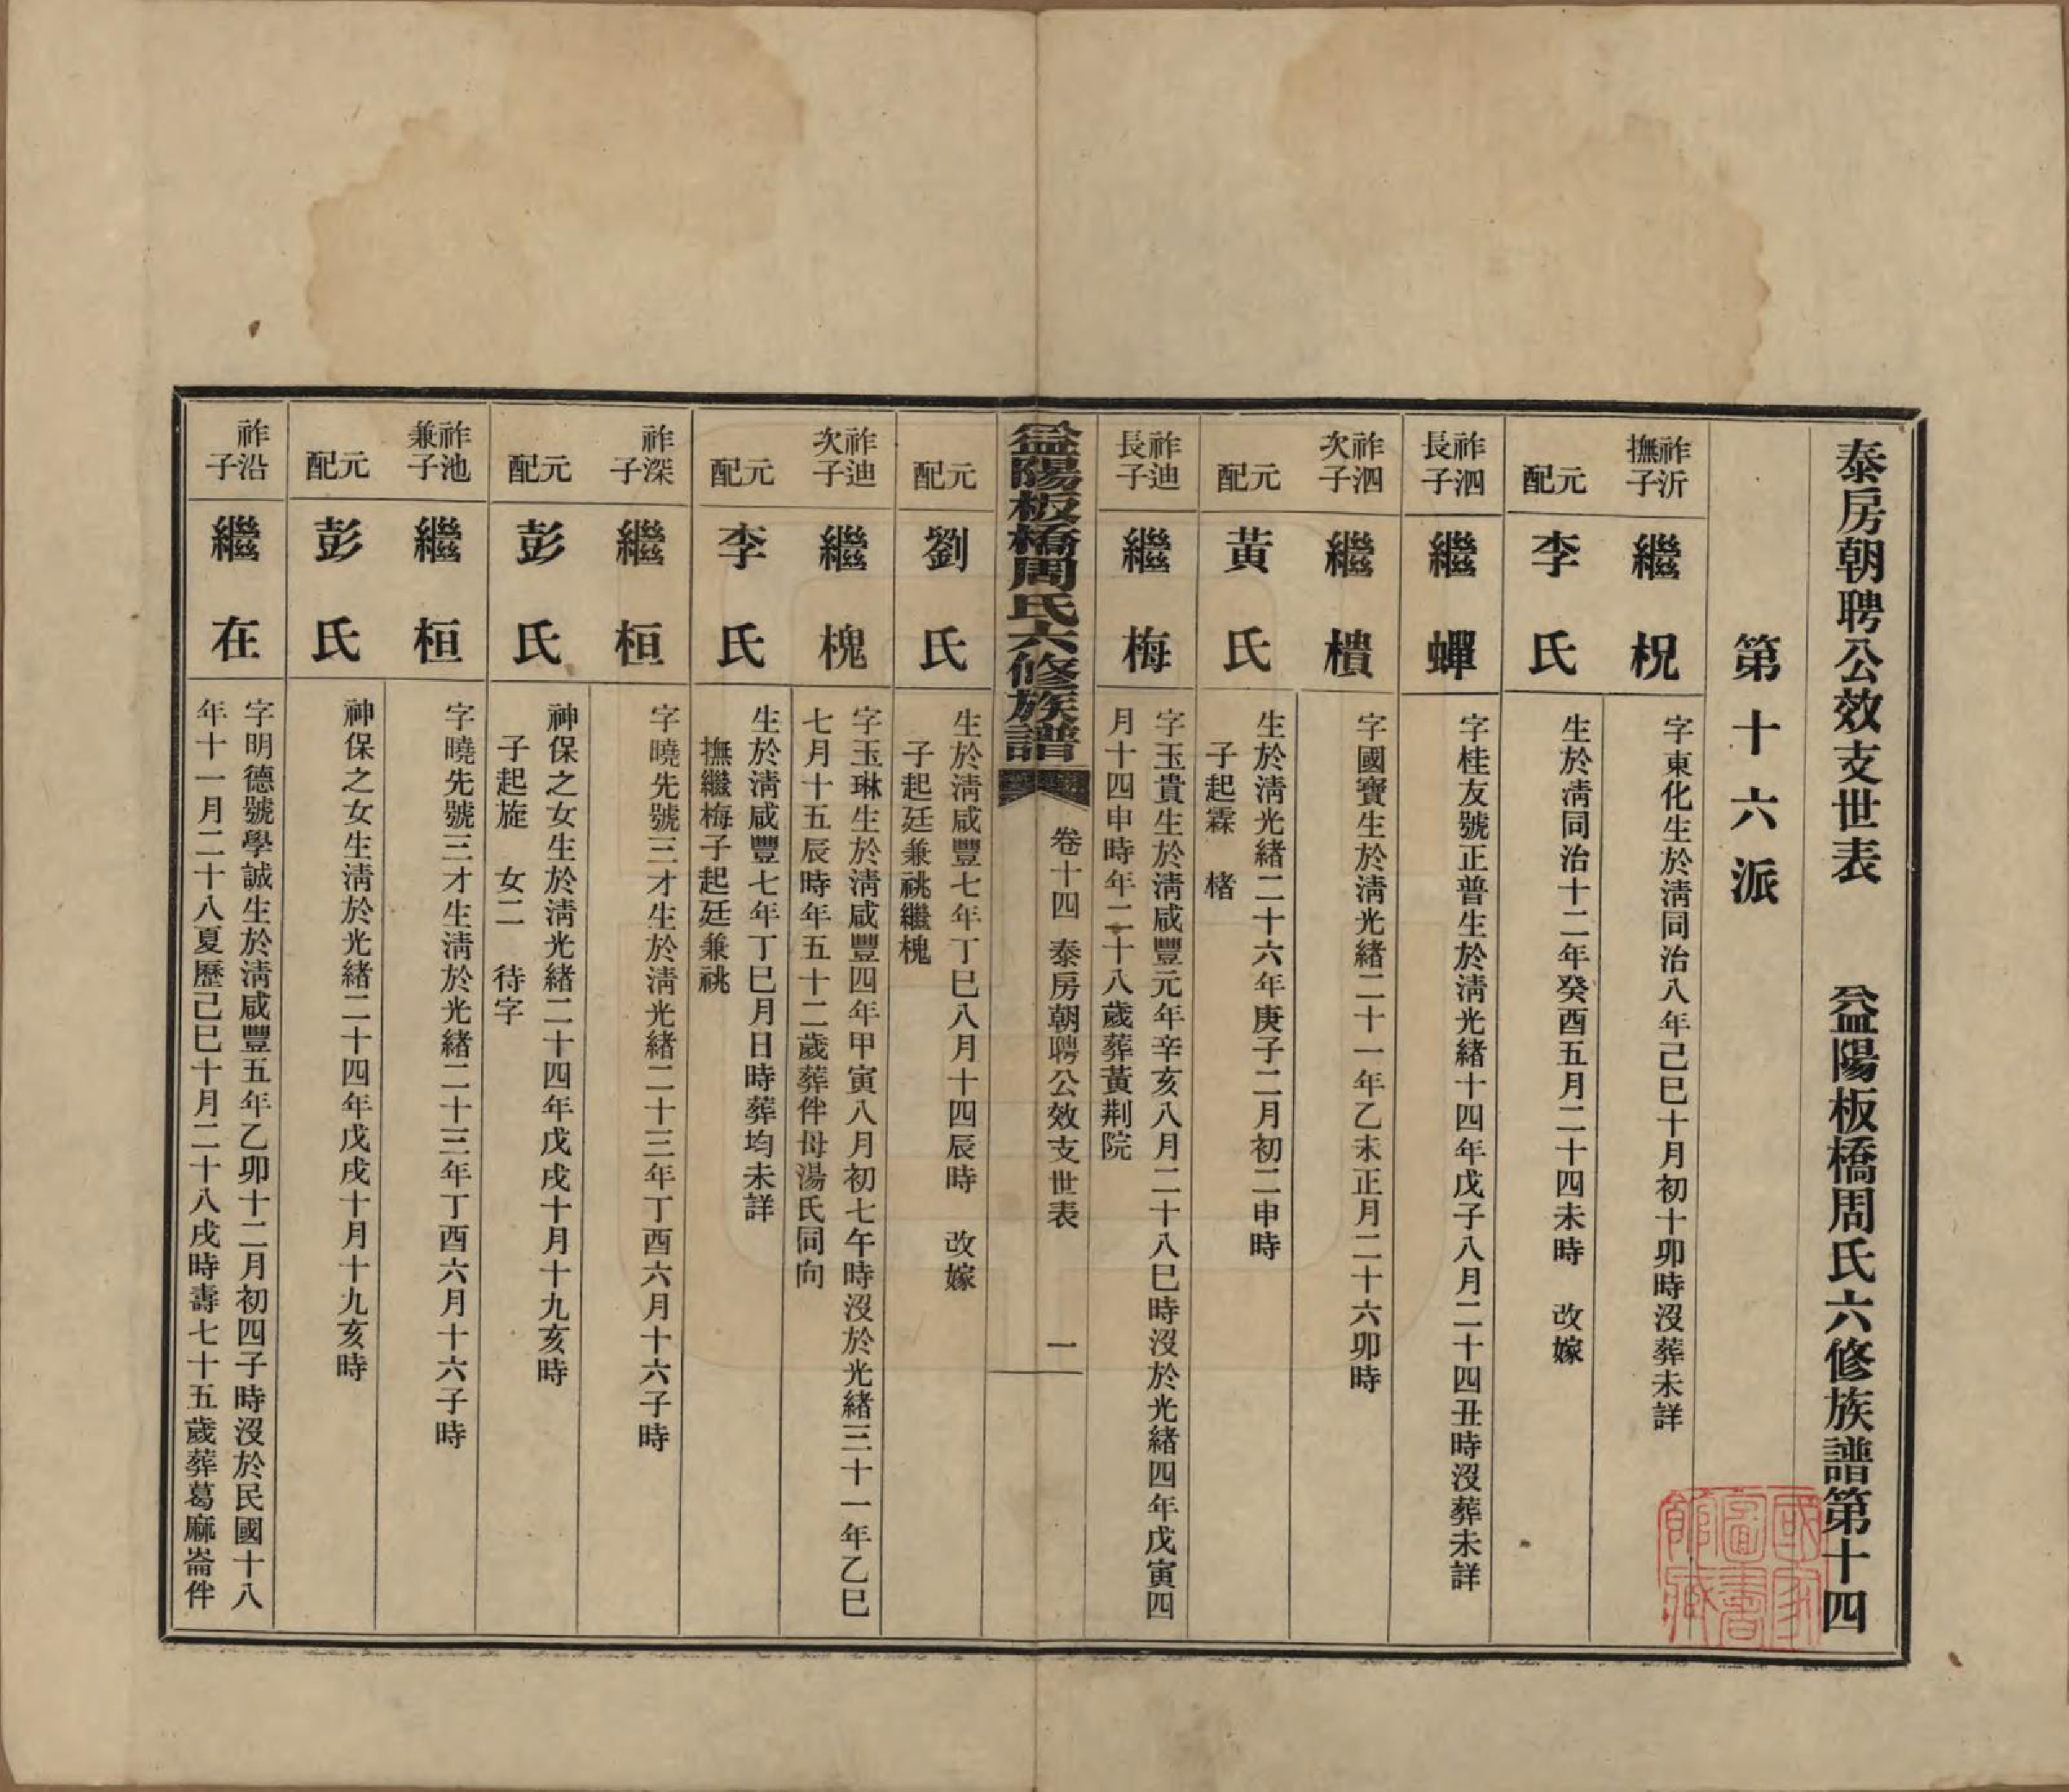 泰房朝聘公效支世表　益陽板橋周氏六修族譜第十四
第十六派
祚沂
撫子
繼柷
字東化生於淸同治八年己巳十月初十卯時沒葬未詳
元配
李氏
生於淸同治十二年癸酉五月二十四未時　改嫁
祚泗
長子
繼蟬
字桂友號正普生於淸光緖十四年戊子八月二十四丑時沒葬未詳
祚泗
次子
繼樻
字國寶生於淸光緖二十一年乙未正月二十六卯時
元配
黃氏
生於淸光緖二十六年庚子二月初二申時
子起霖　楮
祚迪
長子
繼梅
字玉貴生於淸咸豐元年辛亥八月二十八巳時沒於光緖四年戊寅四
月十四申時年二十八歲葬黃荆院
益陽板橋周氏六修族譜
卷十四　泰房朝聘公效支世表
一
元配
劉氏
生於淸咸豐七年丁巳八月十四辰時　改嫁
子起廷兼祧繼槐
祚迪
次子
繼槐
字玉琳生於淸咸豐四年甲寅八月初七午時沒於光緖三十一年乙巳
七月十五辰時年五十二歲葬伴母湯氏同向
元配
李氏
生於淸咸豐七年丁巳月日時葬均未詳
撫繼梅子起廷兼祧
祚深
子
繼桓
字曉先號三才生於淸光緖二十三年丁酉六月十六子時
元配
彭氏
神保之女生於淸光緖二十四年戊戌十月十九亥時
子起旋　女二　待字
祚池
兼子
繼桓
字曉先號三才生淸於光緖二十三年丁酉六月十六子時
元配
彭氏
神保之女生淸於光緖二十四年戊戌十月十九亥時
祚沿
子
繼在
字明德號學誠生於淸咸豐五年乙卯十二月初四子時沒於民國十八
年十一月二十八夏歷己巳十月二十八戌時壽七十五歲葬葛麻崙伴
國家
圖書
館藏